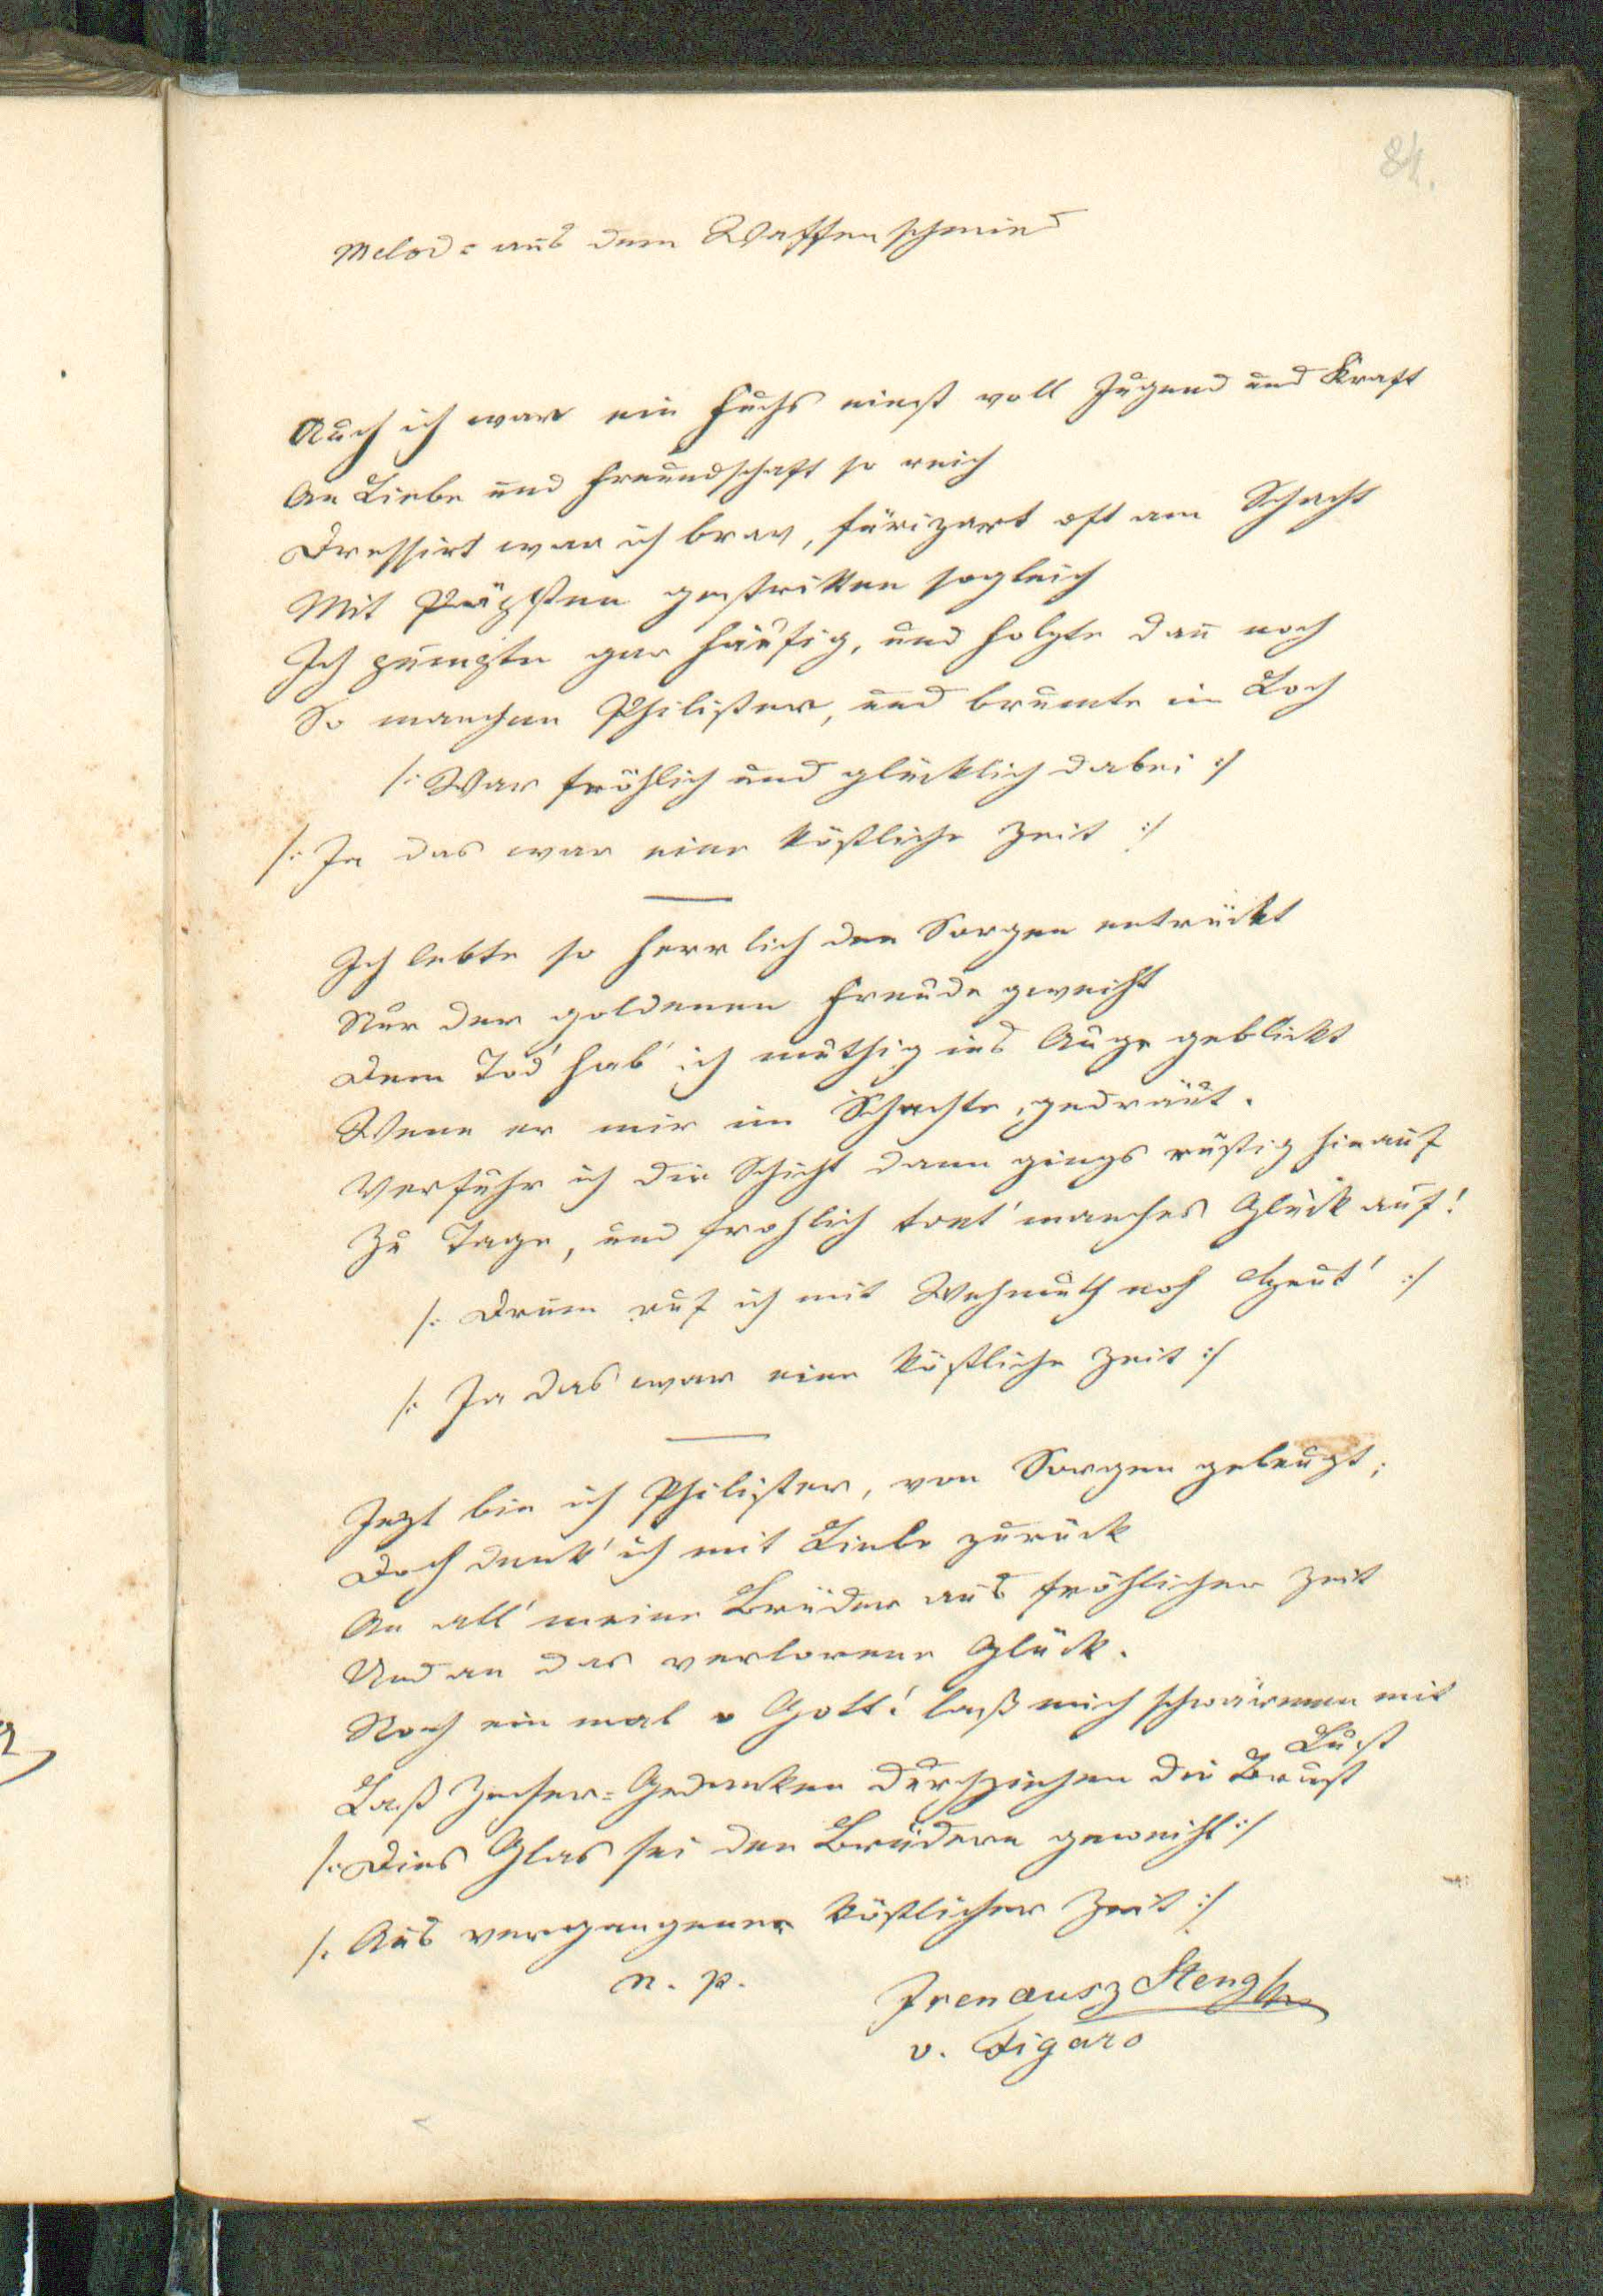 84.
Melod: aus dem Waffenschmied
Auch ich war ein Fuchs einst voll Jugend und Kraft
An Liebe und Freundschaft so reich
Dressirt war ich brav, oft am Schacht
Mit gestritten sogleich
Ich pumpte gar häufig, und holzte dañ noch
So manchen Philister, und brumte im Loch
/: War fröhlich und glücklich dabei :/
/: Ja das war eine köstliche Zeit :/
Ich lebte so herrlich den Sorgen entrückt
Nur der goldenen Freude geweiht
Dem Tod' hab' ich muthig ins Auge geblickt
Wenn er mir im Schachte gedräut.
Verfuhr ich die Schicht dann gings rüstig hinauf
Zu Tage, und frohlich tont' manches Glück auf!
/: Drum ruf ich mit Wehmuth noch heut' :/
/: Ja das war eine köstliche Zeit :/
Jezt bin ich Philister, von Sorgen gebeugt;
Doch denk' ich mit Liebe zurück
An all' meine Brüder aus fröhlicher Zeit
Und an das verlorene Glück.
Noch ein mal o Gott! laß mich schwärmen mit
Lust
Laß Zecher-Gedanken durchziehen die Brust
/: Dies Glas sei den Brüdern geweiht :/
/: Aus vergangener köstlicher Zeit :/
n. p.
Irenausz Stengl
v. Figaro